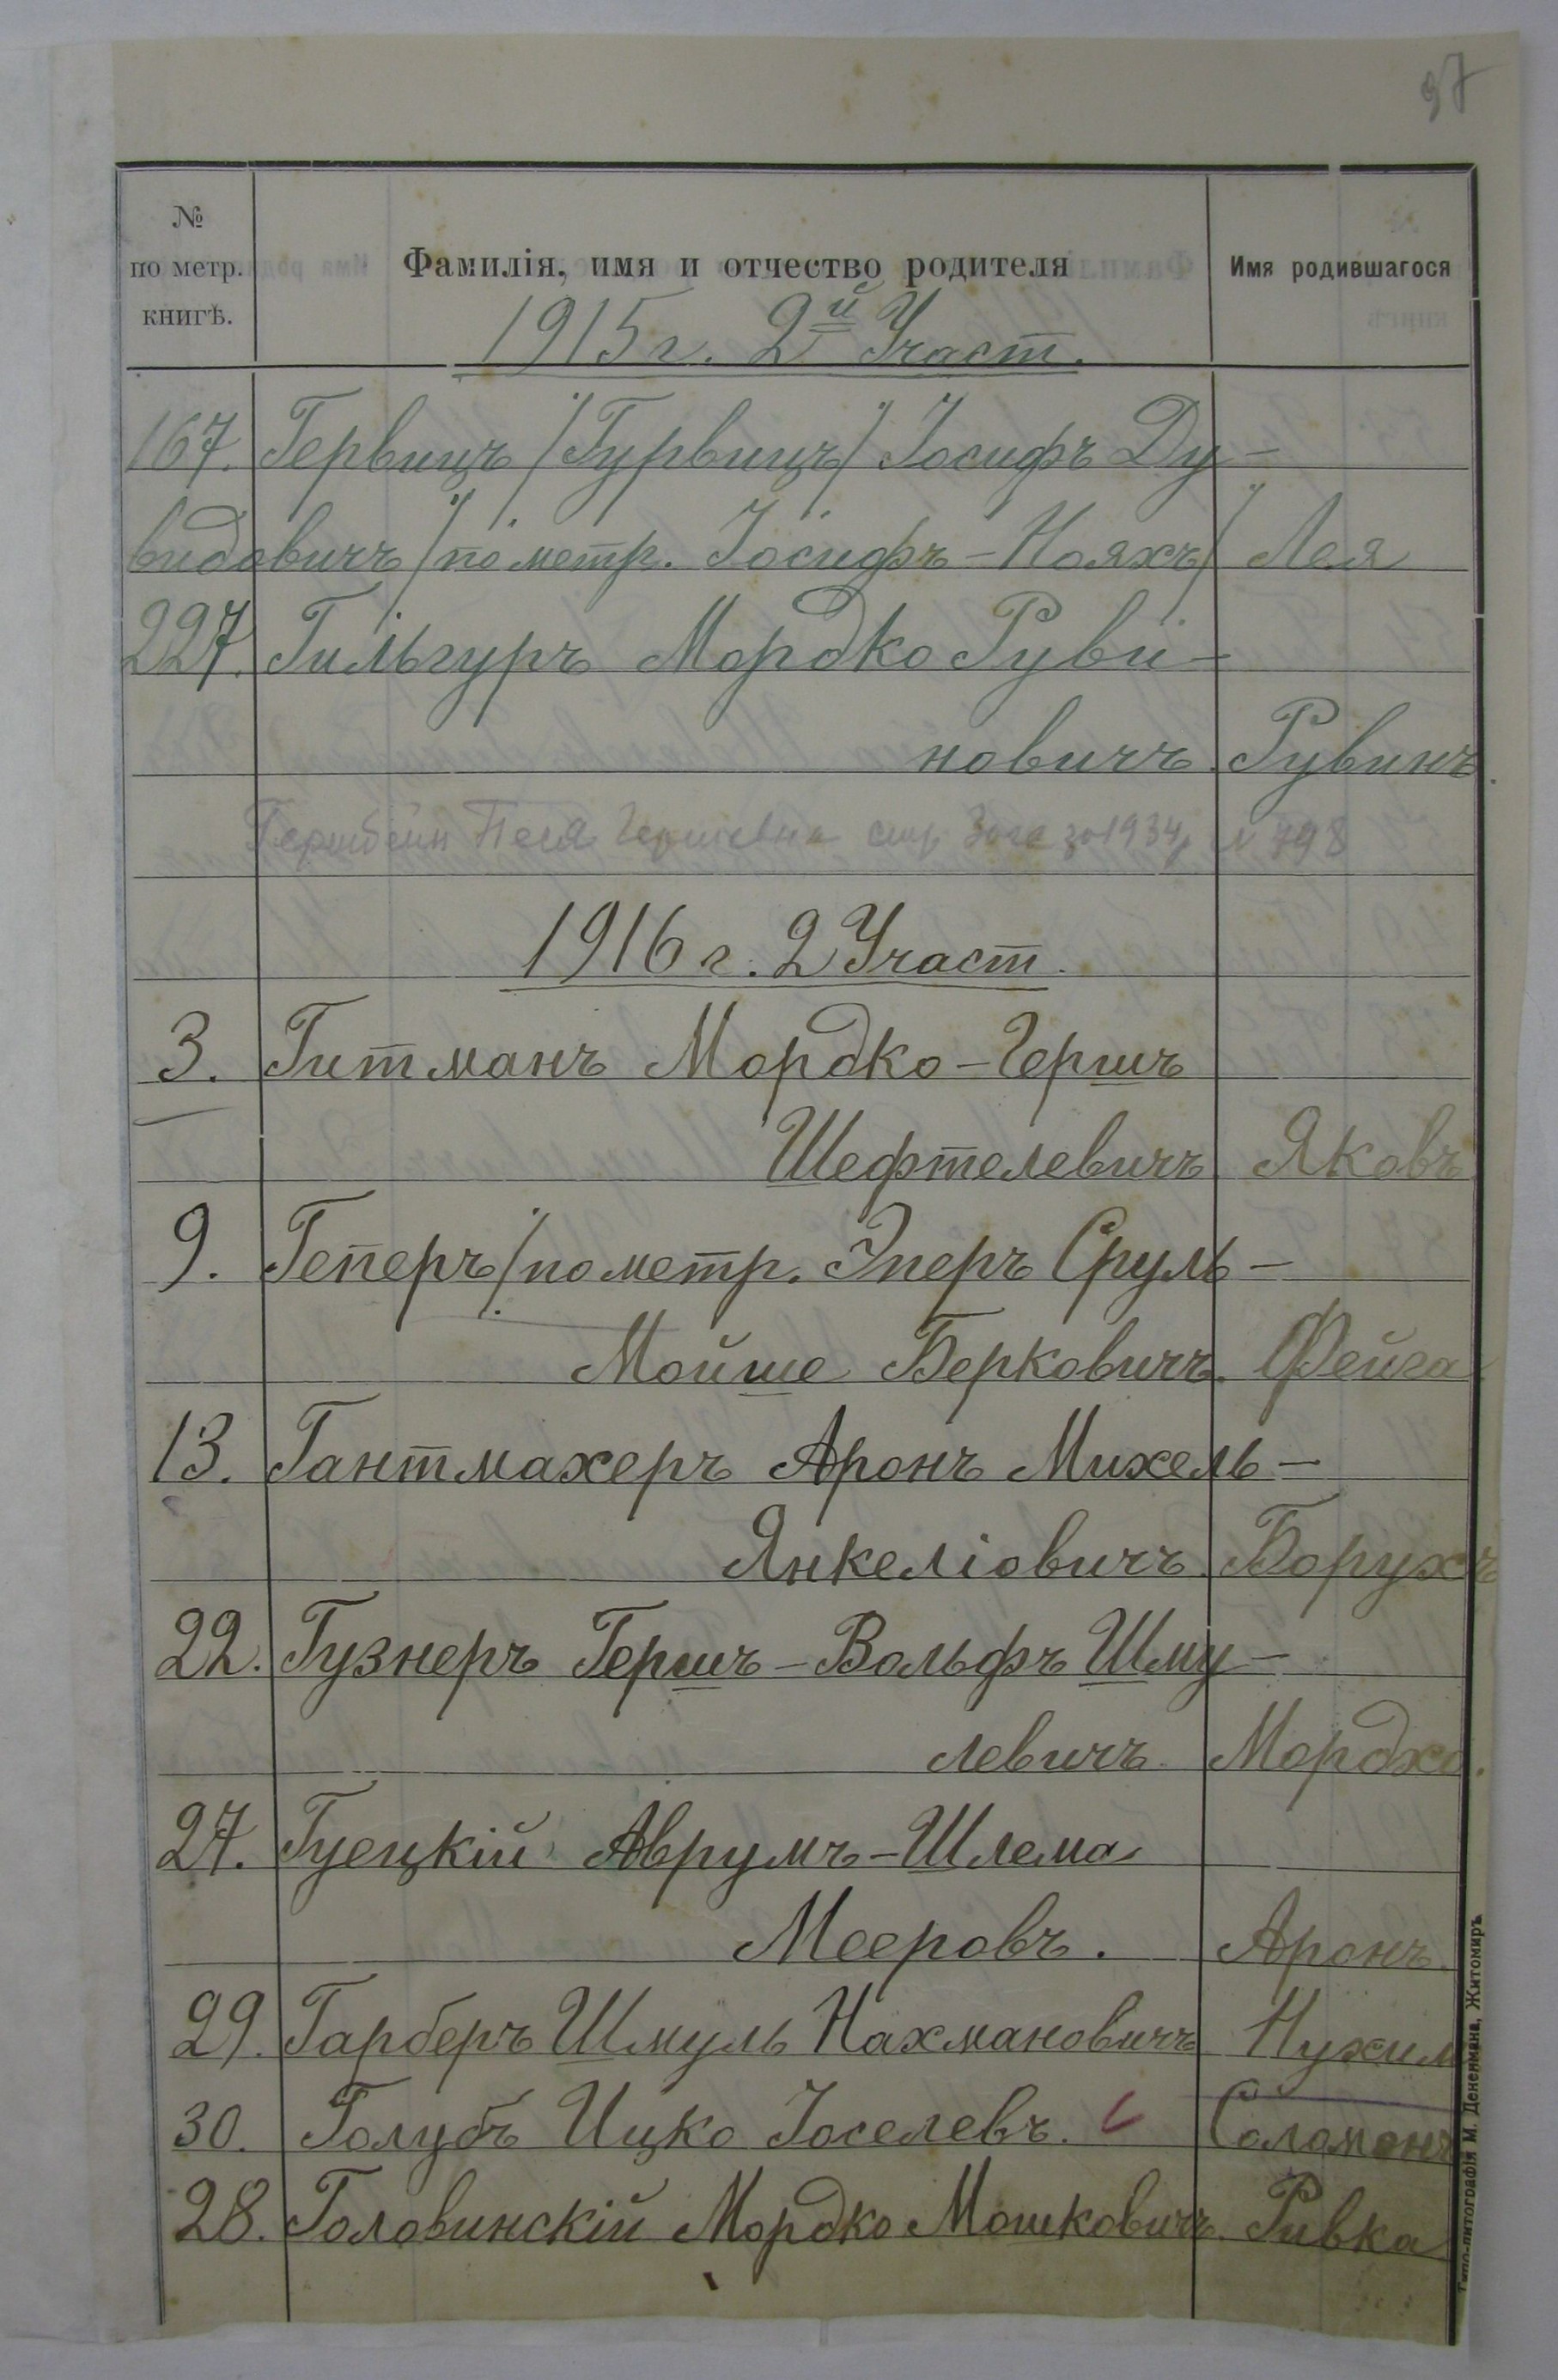 97
№
по метр.
книгѣ.
Фамилія, имя и отчество родителя
Имя родившагося
1915 г. 2й Участ.
167. Гервицъ /Гурвицъ/ Іосифъ Ду-
видовичъ /по метр. Іосифъ-Нояхъ/ Лея
227. Гильгуръ Мордко Руви-
новичъ. Рувинъ.
Гершбейн Песя Гершевна за 1934 г. № 798
1916 г. 2 Участ.
3. Гитманъ Мордко-Гершъ
Шефтелевичъ. Яковъ
9. Геперъ /по метр. Эперъ Сруль-
Мойше Берковичъ. Фейга
13. Гантмахеръ Аронъ Михель-
Янкеліовичъ. Борухъ
22. Гузнеръ Гершъ-Вольфъ Шму-
левичъ. Мордхо.
27. Гуецкій Аврумъ-Шлема
Мееровъ. Аронъ.
29. Гарберъ Шмуль Нахмановичъ Нухим
30. Голубъ Ицко Іоселевъ. Соломонъ
28. Головинскій Мордко Мошковичъ. Ривка
Типо-литографія М. Дененмана, Житомиръ